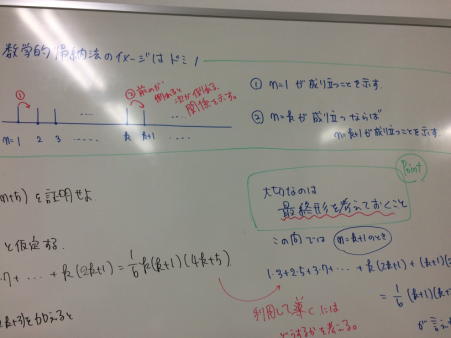 数学的帰納法のイメージはドミノ
①
②前のが
倒れると
次が倒れる
関係を示す。
n=1 2 3 ...... k k+1 ......
① n=1が成り立つことを示す.
② n=kが成り立つならば
n=k+1が成り立つことを示す
Point
大切なのは
最終形を考えておくこと
n+5) を証明せよ
と仮定する.
・7+ ... + k(2k+1) = 1/6 k(k+1)(4k+5)
k+3)を加えると
この問では n=k+1のとき
1・3+2・5+3・7+ ... + k(2k+1) + (k+1)(
= 1/6 (k+1)(k+
が言え
利用して楽くには
どうするかを考える。